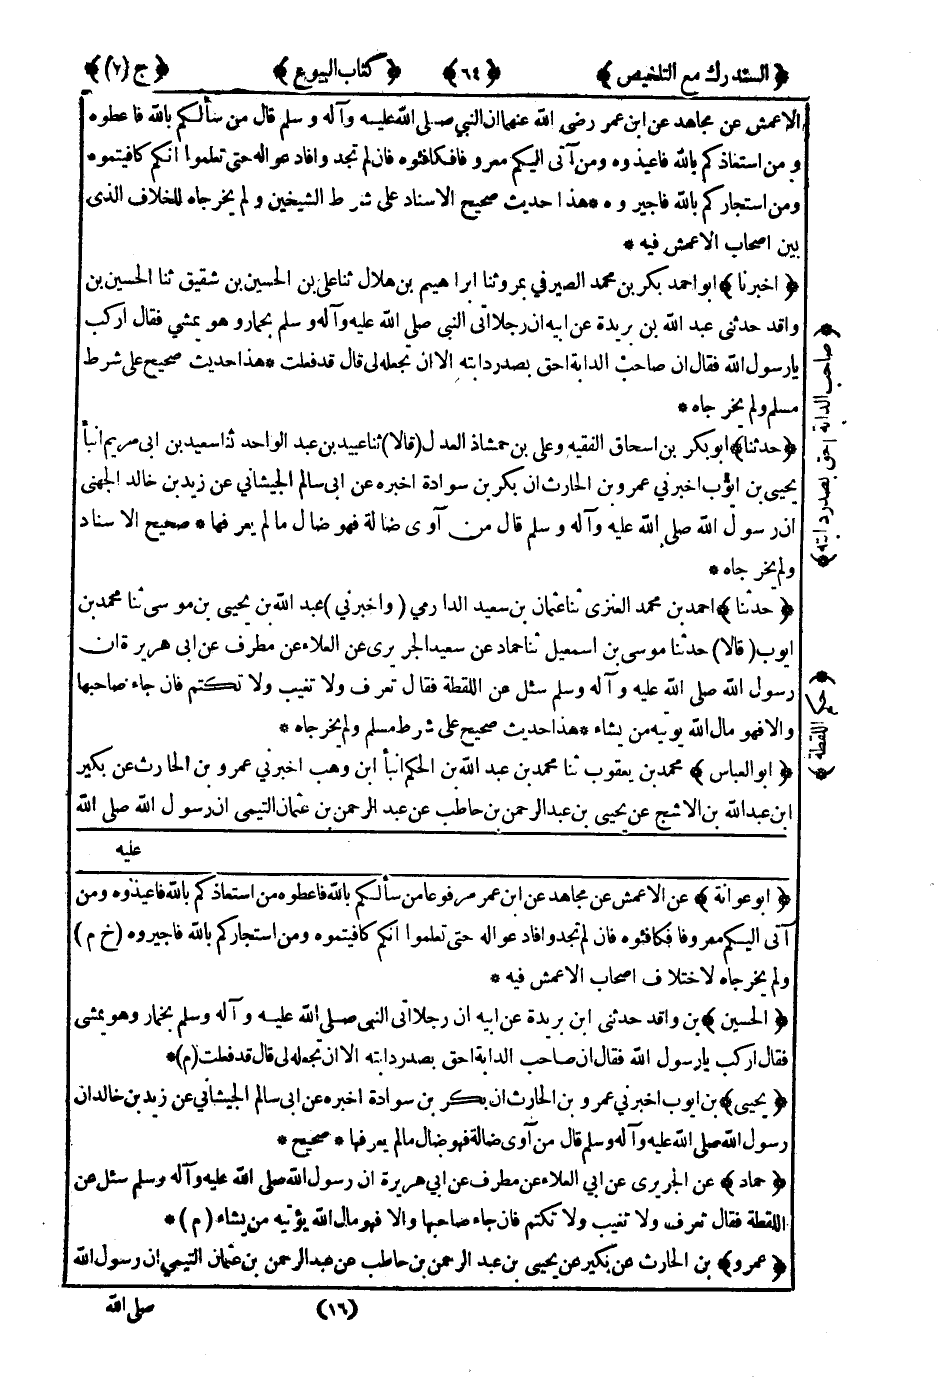 ﴿ المستدرك مع التلخيص ﴾ ﴿ ٦٤ ﴾ ﴿ كتاب البيوع ﴾ ﴿ ج (٢) ﴾
الاعمش عن مجاهد عن ابن عمر رضى الله عنهما ان النبي صلى الله عليه وآله وسلم قال من سألكم بالله فاعطوه
ومن استعاذكم بالله فاعيذوه ومن آتى اليكم معروفا فكافئوه فان لم تجدوا فادعوا له حتى تعلموا انكم كافيتموه
ومن استجاركم بالله فاجيروه * هذا حديث صحيح الاسناد على شرط الشيخين ولم يخرجاه للخلاف الذى
بين اصحاب الاعمش فيه *
﴿ اخبرنا ﴾ ابو احمد بكر بن محمد الصيرفي بمرو ثنا ابراهيم بن هلال ثنا على بن الحسين بن شقيق ثنا الحسين بن
واقد حدثنى عبد الله بن بريدة عن ابيه ان رجلا اتى النبى صلى الله عليه وآله وسلم بحمار وهو يمشي فقال اركب
يا رسول الله فقال ان صاحب الدابة احق بصدر دابته الا ان تجعله لى قال قد فعلت * هذا حديث صحيح على شرط
مسلم ولم يخرجاه *
﴿ حدثنا ﴾ ابو بكر بن اسحاق الفقيه وعلى بن حمشاذ العدل (قالا) ثنا عبيد بن عبد الواحد ثنا سعيد بن ابى مريم انبأ
يحيى بن ايوب اخبرني عمرو بن الحارث ان بكر بن سوادة اخبره عن ابى سالم الجيشاني عن زيد بن خالد الجهنى
ان رسول الله صلى الله عليه وآله وسلم قال من آوى ضالة فهو ضال ما لم يعرفها * صحيح الاسناد
ولم يخرجاه *
﴿ حدثنا ﴾ احمد بن محمد العنزى ثنا عثمان بن سعيد الدارمي (واخبرني) عبد الله بن يحيى بن موسى ثنا محمد بن
ايوب (قالا) حدثنا موسى بن اسمعيل ثنا حماد عن سعيد الجريرى عن العلاء عن مطرف عن ابى هريرة ان
رسول الله صلى الله عليه وآله وسلم سئل عن اللقطة فقال تعرف ولا تغيب ولا تكتم فان جاء صاحبها
والا فهو مال الله يؤتيه من يشاء * هذا حديث صحيح على شرط مسلم ولم يخرجاه *
﴿ ابو العباس ﴾ محمد بن يعقوب ثنا محمد بن عبد الله بن الحكم انبأ ابن وهب اخبرني عمرو بن الحارث عن بكير
ابن عبد الله بن الاشج عن يحيى بن عبد الرحمن بن حاطب عن عبد الرحمن بن عثمان التيمى ان رسول الله صلى الله
عليه
﴿ صاحب الدابة احق بصدر دابته ﴾
﴿ حكم اللقطة ﴾
﴿ ابو عوانة ﴾ عن الاعمش عن مجاهد عن ابن عمر مرفوعا من سألكم بالله فاعطوه من استعاذكم بالله فاعيذوه ومن
آتى اليكم معروفا فكافئوه فان لم تجدوا فادعوا له حتى تعلموا انكم كافيتموه ومن استجاركم بالله فاجيروه (خ م)
ولم يخرجاه لاختلاف اصحاب الاعمش فيه *
﴿ الحسين ﴾ بن واقد حدثنى ابن بريدة عن ابيه ان رجلا اتى النبى صلى الله عليه وآله وسلم بحمار وهو يمشى
فقال اركب يا رسول الله فقال ان صاحب الدابة احق بصدر دابته الا ان تجعله لى قال قد فعلت (م) *
﴿ يحيى ﴾ بن ايوب اخبرني عمرو بن الحارث ان بكر بن سوادة اخبره عن ابى سالم الجيشاني عن زيد بن خالد ان
رسول الله صلى الله عليه وآله وسلم قال من آوى ضالة فهو ضال ما لم يعرفها * صحيح *
﴿ حماد ﴾ عن الجريرى عن ابي العلاء عن مطرف عن ابي هريرة ان رسول الله صلى الله عليه وآله وسلم سئل عن
اللقطة فقال تعرف ولا تغيب ولا تكتم فان جاء صاحبها والا فهو مال الله يؤتيه من يشاء (م) *
﴿ عمرو ﴾ بن الحارث عن بكير عن يحيى بن عبد الرحمن بن حاطب عن عبد الرحمن بن عثمان التيمي ان رسول الله
(١٦) صلى الله